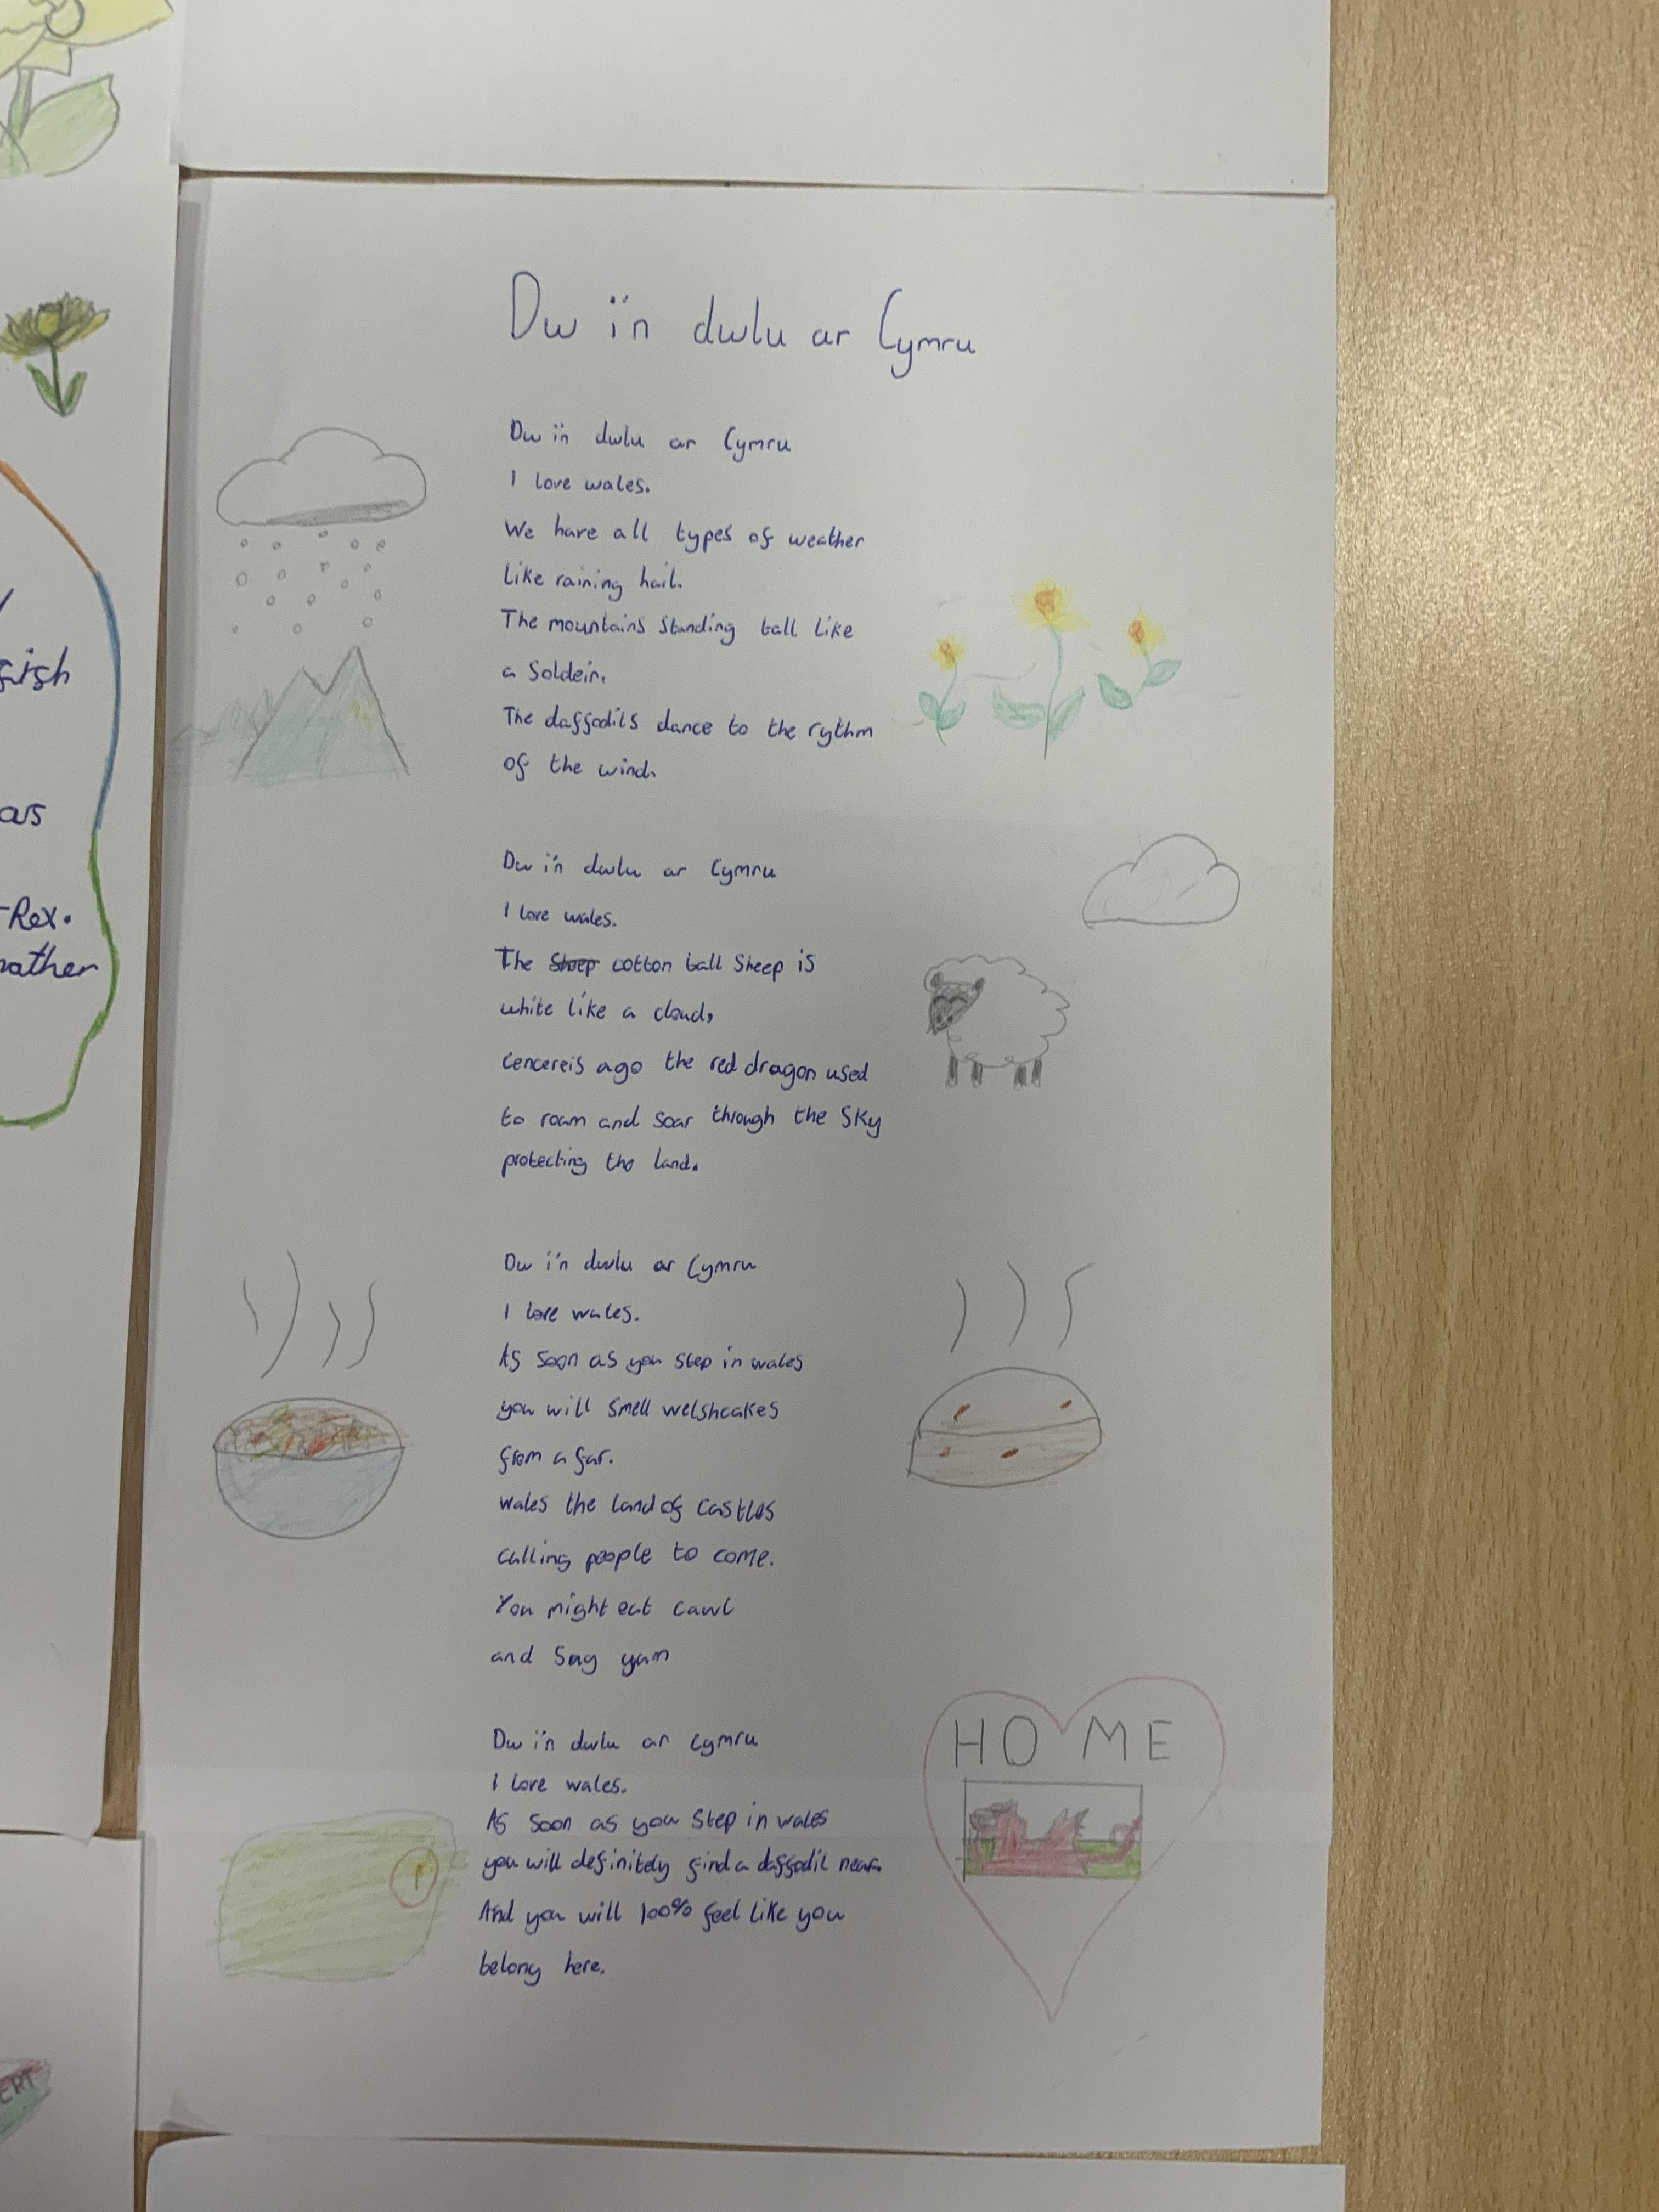 Dw i'n dwlu ar Cymru
Dw i'n dwlu ar Cymru
I love wales.
We have all types of weather
like raining hail.
The mountains standing tall like
a Soldeir.
The daffodils dance to the rythm
of the wind.
Dw i'n dwlu ar Cymru
I love wales.
The Sheep cotton ball Sheep is
white like a cloud,
cencereis ago the red dragon used
to roam and soar through the sky
protecting the land.
Dw i'n dwlu ar Cymru
I love wales.
As soon as you step in wales
you will smell welshcakes
from a far.
wales the land of castles
calling people to come.
You might eat cawl
and say yum
Dw i'n dwlu ar cymru
I love wales.
As soon as you step in wales
you will definitely find a daffodil near.
And you will 100% feel like you
belong here.
HOME
fish
as
-Rex.